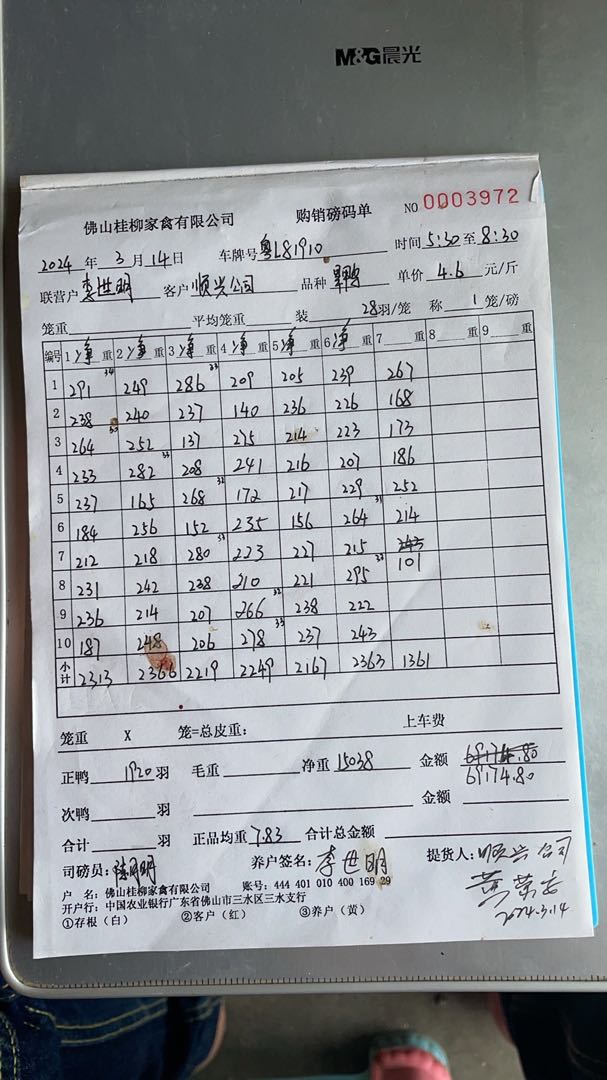 M&G晨光
佛山桂柳家禽有限公司 购销磅码单 NO 0003972
2024 年 3 月 14 日 车牌号 粤L81910 时间 5:30 至 8:30
联营户 李世明 客户 顺兴公司 品种 单价 4.6 元/斤
笼重 平均笼重 装 28 羽/笼 称 1 笼/磅
编号 1 净 重 2 净 重 3 净 重 4 净 重 5 净 重 6 净 重 7 重 8 重 9 重
1 291 34 249 286 33 209 205 239 267
2 238 240 237 140 236 226 168
3 264 30 252 137 275 214 223 173
4 233 282 33 208 241 216 207 186
5 237 165 268 32 172 217 229 252
6 184 256 152 235 156 264 31 214
7 212 218 280 33 223 227 215 101
8 231 242 238 210 221 295
9 236 214 207 266 32 238 222
10 187 248 206 278 33 237 243
小计 2313 2366 2219 2249 2167 2363 1361
笼重 X 笼=总皮重: 上车费
正鸭 1920 羽 毛重 净重 15038 金额 69174.80
69174.80
次鸭 羽 金额
合计 羽 正品均重 7.83 合计总金额
司磅员: 养户签名: 李世明 提货人: 顺兴公司
户 名: 佛山桂柳家禽有限公司 账号: 444 401 010 400 169 29
开户行: 中国农业银行广东省佛山市三水区三水支行
①存根（白） ②客户（红） ③养户（黄） 2024.3.14